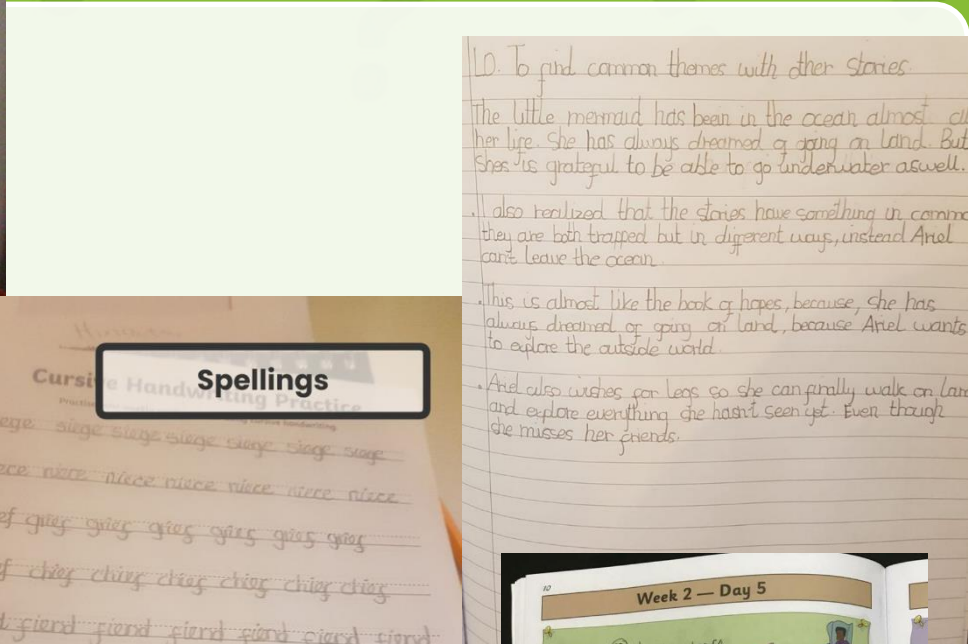 L.O. To find common themes with other stories.
The little mermaid has been in the ocean almost
her life. She has always dreamed of going on land. But
shes is grateful to be able to go underwater aswell.
I also realized that the stories have something in
they are both trapped but in different ways, instead Ariel
can't leave the ocean.
This is almost like the book of hopes, because, she has
always dreamed of going on land, because Ariel wants
to explore the outside world.
Ariel also wishes for legs so she can finally walk on
and explore everything she hasn't seen yet. Even though
she misses her friends.
Spellings
Cursive Handwriting Practice
siege siege siege siege siege siege
niece niece niece niece niece niece
grief grief grief grief grief grief
chief chief chief chief chief chief
fiend fiend fiend fiend fiend fiend
10
Week 2 — Day 5